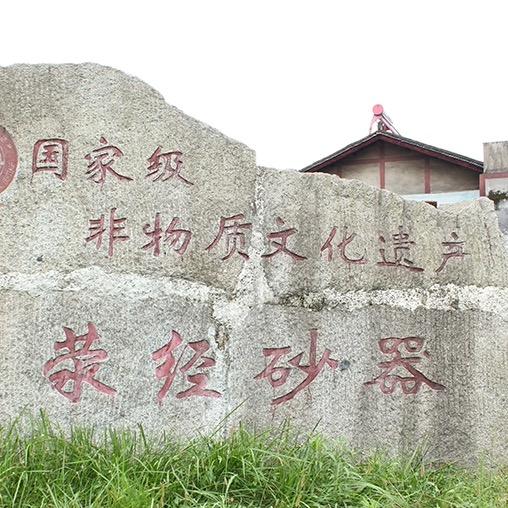 国家级
非物质文化遗产
荥经砂器